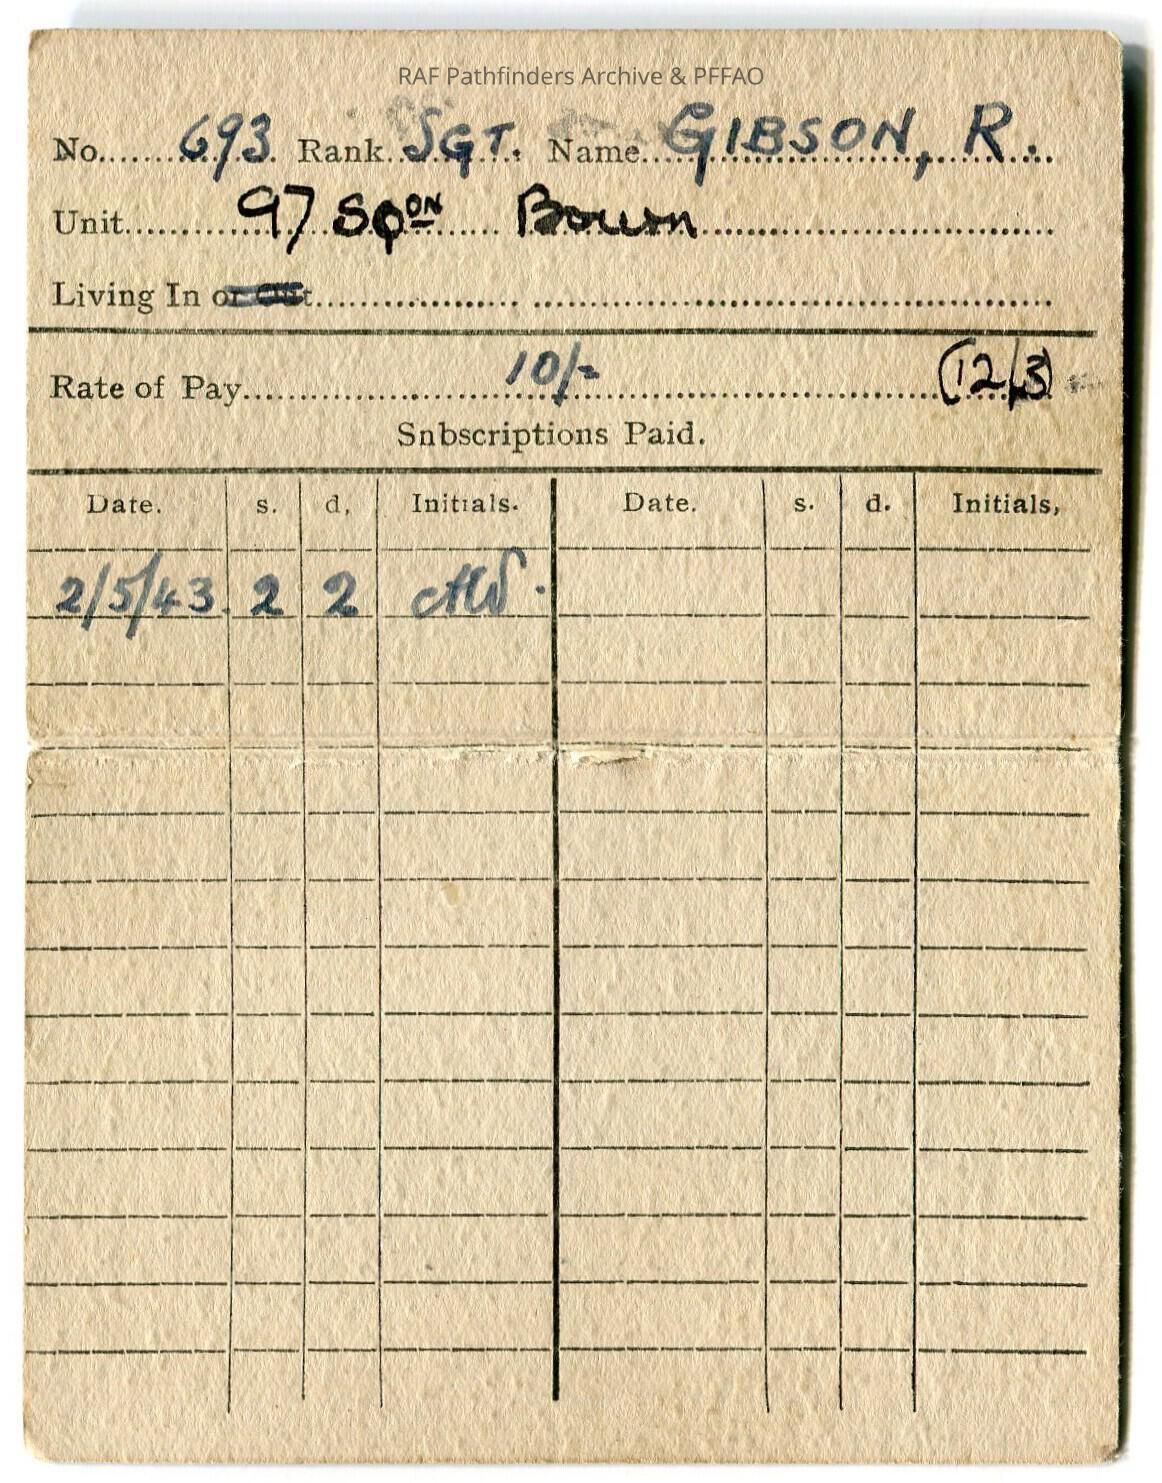 RAF Pathfinders Archive & PFFAO
No. 693 Rank SGT. Name GIBSON, R.
Unit 97 SQON Bourn
Living In or Out
Rate of Pay 10/- (12/3)
Snbscriptions Paid.
Date. s. d, Initials. Date. s. d. Initials,
2/5/43. 2 2